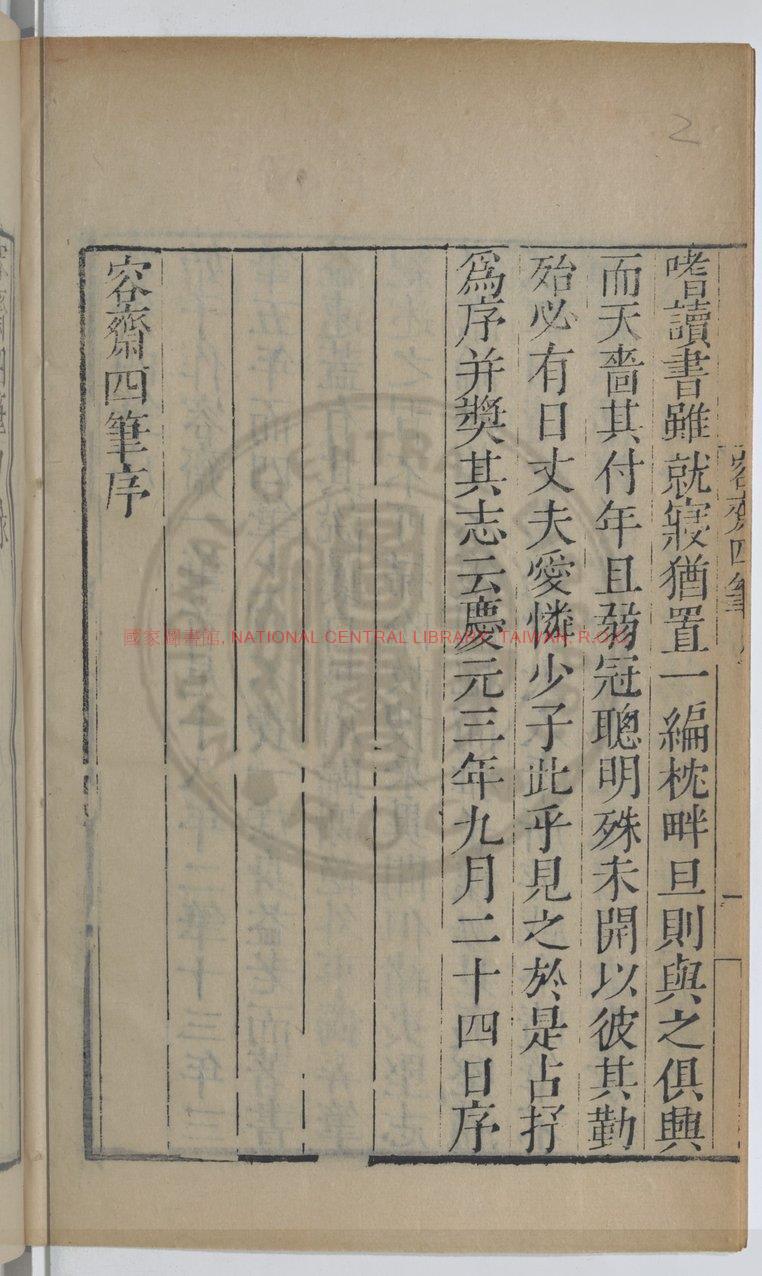 嗜讀書雖就寢猶置一編枕畔旦則與之俱興
而天嗇其付年且弱冠聰明殊未開以彼其勤
殆必有日丈夫愛憐少子此乎見之於是占抒
爲序并奬其志云慶元三年九月二十四日序
容齋四筆序
容齋四筆
2
國家圖書館, NATIONAL CENTRAL LIBRARY, TAIWAN, R.O.C